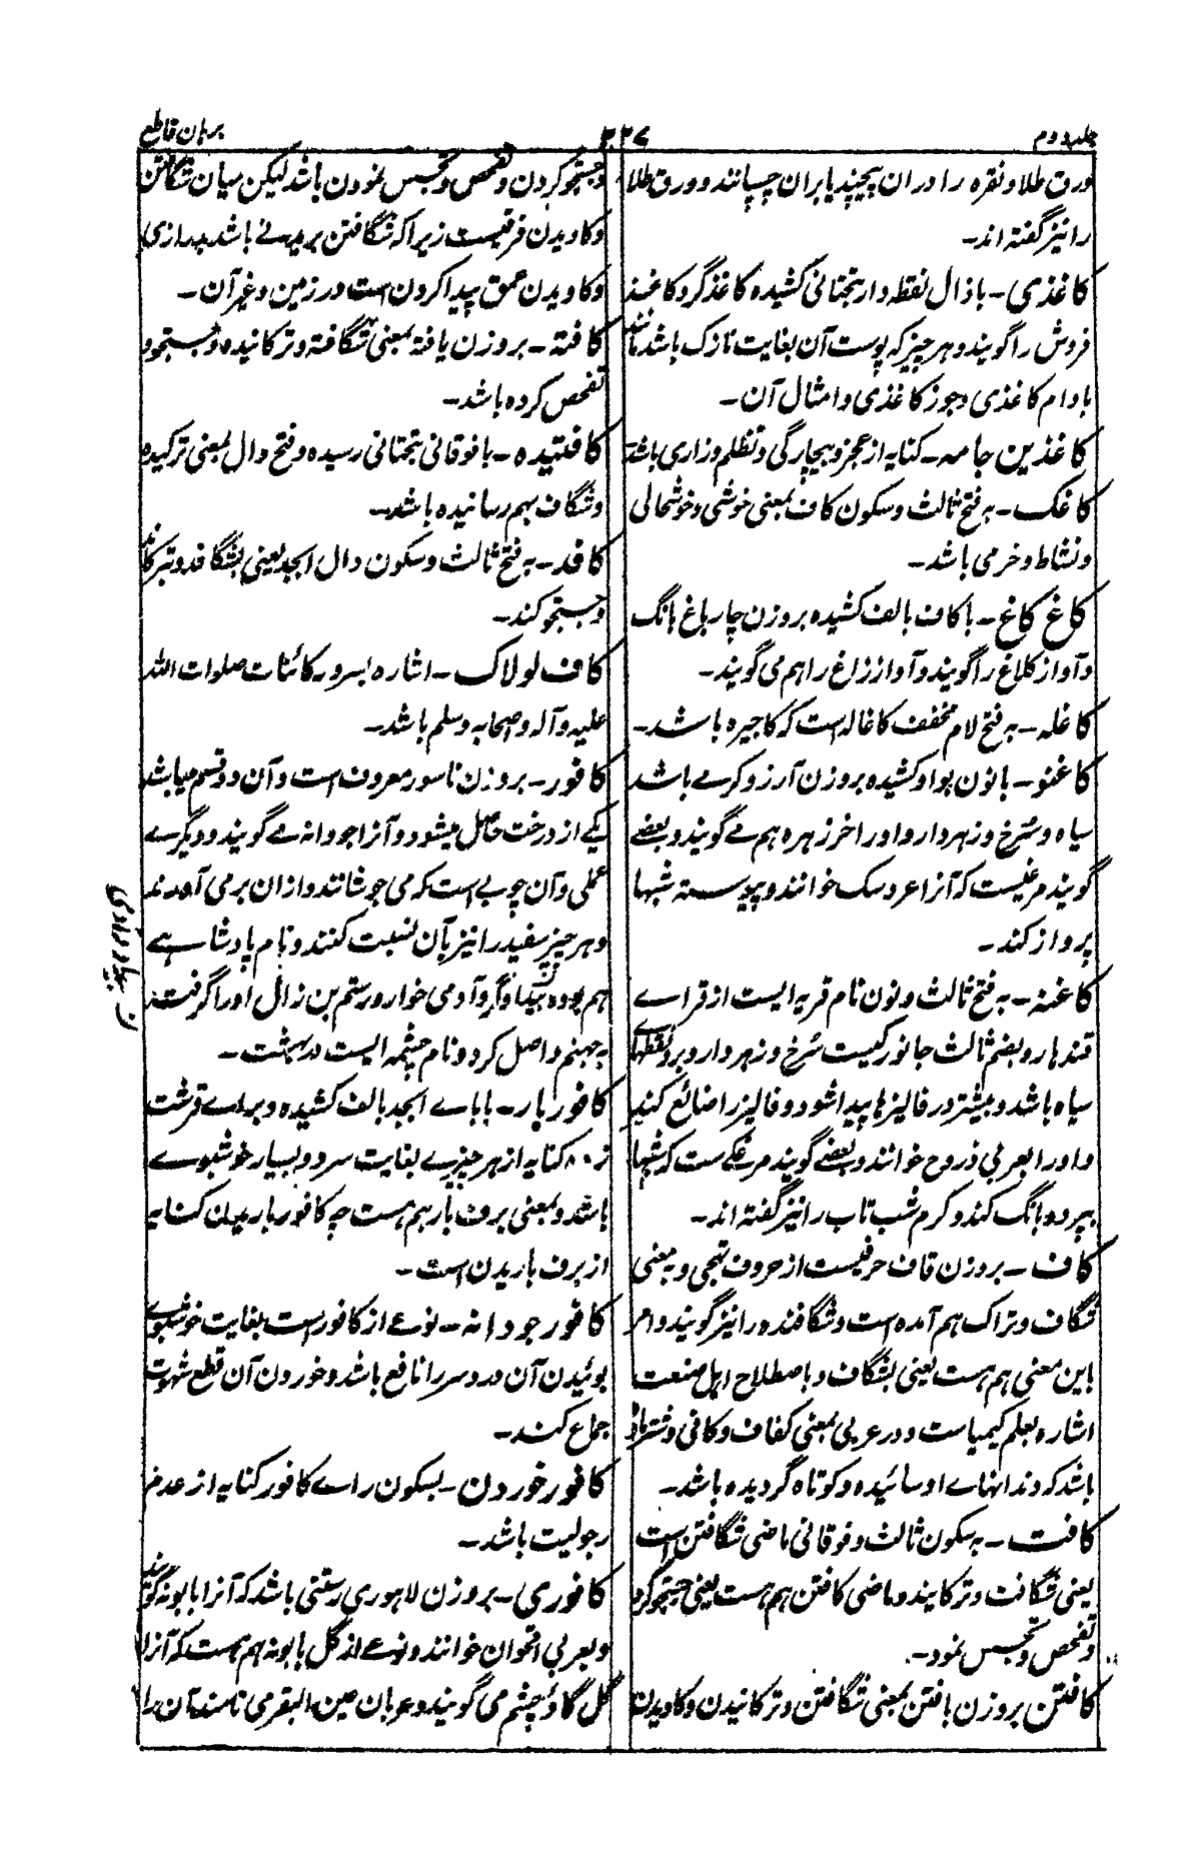 جلد دوم
۳۳۷
برہان قاطع
ورق طلا و نقرہ را دران پیچند یا بران چسپانند و ورق طلا
را نیز گفتہ اند۔
کاغذی۔ با ذال نقطہ دار بتحتانی کشیدہ کاغذ گر و کاغذ
فروش را گویند و ہر چیز کہ پوست آن بغایت نازک باشد مانند
بادام کاغذی و جوز کاغذی و امثال آن۔
کاغذین جامہ۔ کنایہ از عجز و بیچارگی و تظلم و زاری باشد
کاغک۔ بہ فتح ثالث و سکون کاف بمعنی خوشی و خوشحالی
و نشاط و خرمی باشد۔
کاغ کاغ۔ با کاف بالف کشیدہ بروزن چار باغ بانگ
و آواز کلاغ را گویند و آواز زاغ را ہم می گویند۔
کاغلہ۔ بہ فتح لام مخفف کاغالہ است کہ کاجیرہ باشد۔
کاغنو۔ با نون بواو کشیدہ بروزن آرزو کرمے باشد
سیاہ و سُرخ و زہردار و اورا خرزہرہ ہم مے گویند و بعضے
گویند مرغیست کہ آنرا عروسک خوانند و پیوستہ شبہا
پرواز کند۔
کاغنہ۔ بہ فتح ثالث و نون نام قریہ ایست از قراے
قندہار و بضم ثالث جانورکیست سُرخ و زہردار و برو نقطہاے
سیاہ باشد و بیشتر در فالیزہا پیدا شود و فالیز را ضائع کند
و اورا بعربی ذروح خوانند و بعضے گویند مرغکے ست کہ شبہا
بپرد و بانگ کند و کرم شب تاب را نیز گفتہ اند۔
کاف۔ بروزن قاف حرفیست از حروف تہجی و بمعنی
شگاف و تراک ہم آمدہ است و شگافندہ را نیز گویند و امر
باین معنی ہم ہست یعنی بشگاف و باصطلاح اہل صنعت
اشارہ بعلم کیمیاست و در عربی بمعنی کفاف و کافی و شترے
باشد کہ دندانہاے او سائیدہ و کوتاہ گردیدہ باشد۔
کافت۔ بہ سکون ثالث و فوقانی ماضی شگافتن است
یعنی شگافت و ترکانید و ماضی کافتن ہم ہست یعنی جستجو کرد
و تفحص و تجسس نمود۔
کافتن بروزن بافتن بمعنی شگافتن و ترکانیدن و کاویدن
و جستجو کردن و تفحص و تجسس نمودن باشد لیکن میان شگافتن
و کاویدن فرقیست زیرا کہ شگافتن بریدنے باشد بدرازی
و کاویدن عمق پیدا کردن است در زمین و غیر آن۔
کافتہ۔ بروزن یافتہ بمعنی شگافتہ و ترکانیدہ و جستجو و
تفحص کردہ باشد۔
کافتیدہ۔ با فوقانی بتحتانی رسیدہ و فتح دال بمعنی ترکیدہ
و شگاف بہم رسانیدہ باشد۔
کافد۔ بہ فتح ثالث و سکون دال ابجد یعنی بشگافد و بترکاند
و جستجو کند۔
کاف لولاک۔ اشارہ بسرور کائنات صلوات اللہ
علیہ و آلہ و صحابہ و سلم باشد۔
کافور۔ بروزن ناسور معروف است و آن دو قسم میباشد
یکے از درخت حاصل میشود و آنرا جودانہ مے گویند و دیگرے
عملی و آن چوبے است کہ می جوشانند و ازان برمی آورند
و ہر چیز سفید را نیز بآن نسبت کنند و نام پادشاہے
ہم بودہ بیدادگر و آدمی خوار و رستم بن زال اورا گرفتہ
بہ جہنم واصل کرد و نام چشمہ ایست در بہشت۔
کافور بار۔ با باے ابجد بالف کشیدہ و براے قرشت
زدہ کنایہ از ہر چیزے بغایت سرد و بسیار خوشبوے
باشد و بمعنی برف بار ہم ہست چہ کافور باریدن کنایہ
از برف باریدن است۔
کافور جودانہ۔ نوعے از کافور است بغایت خوشبوے
بوئیدن آن درد سر را نافع باشد و خوردن آن قطع شہوت
جماع کند۔
کافور خوردن۔ بسکون راے کافور کنایہ از عدم
رجولیت باشد۔
کافوری۔ بروزن لاہوری رستنی باشد کہ آنرا بابونہ گویند
و بعربی اقحوان خوانند و نوعے از گل بابونہ ہم ہست کہ آنرا
گل گاؤ چشم می گویند و عربان عین البقر می نامند آن را